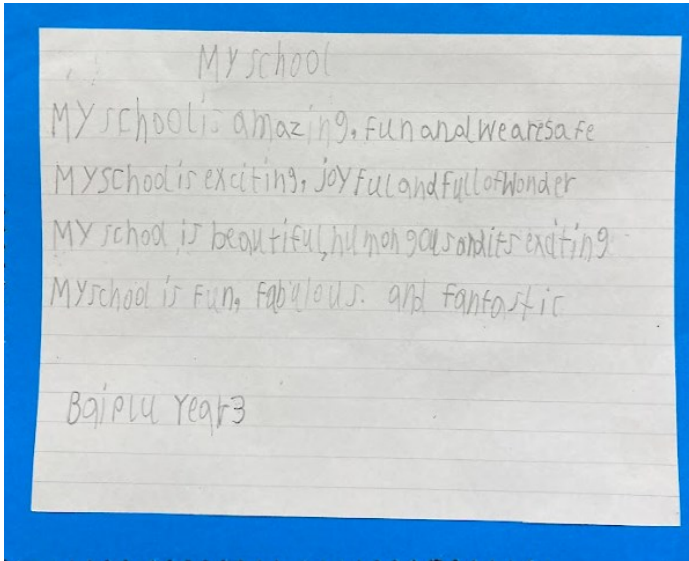 My school
My school is amazing, fun and we are safe
My school is exciting, joyful and full of wonder
My school is beautiful, humongous and its exciting
My school is fun, fabulous. and fantastic
Year 3